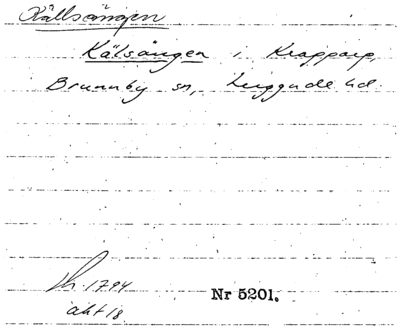 Källsängen
Kälsängen i Krapparp,
Brunnby sn, Luggude hd.
Lh. 1794
akt 18
Nr 5201.